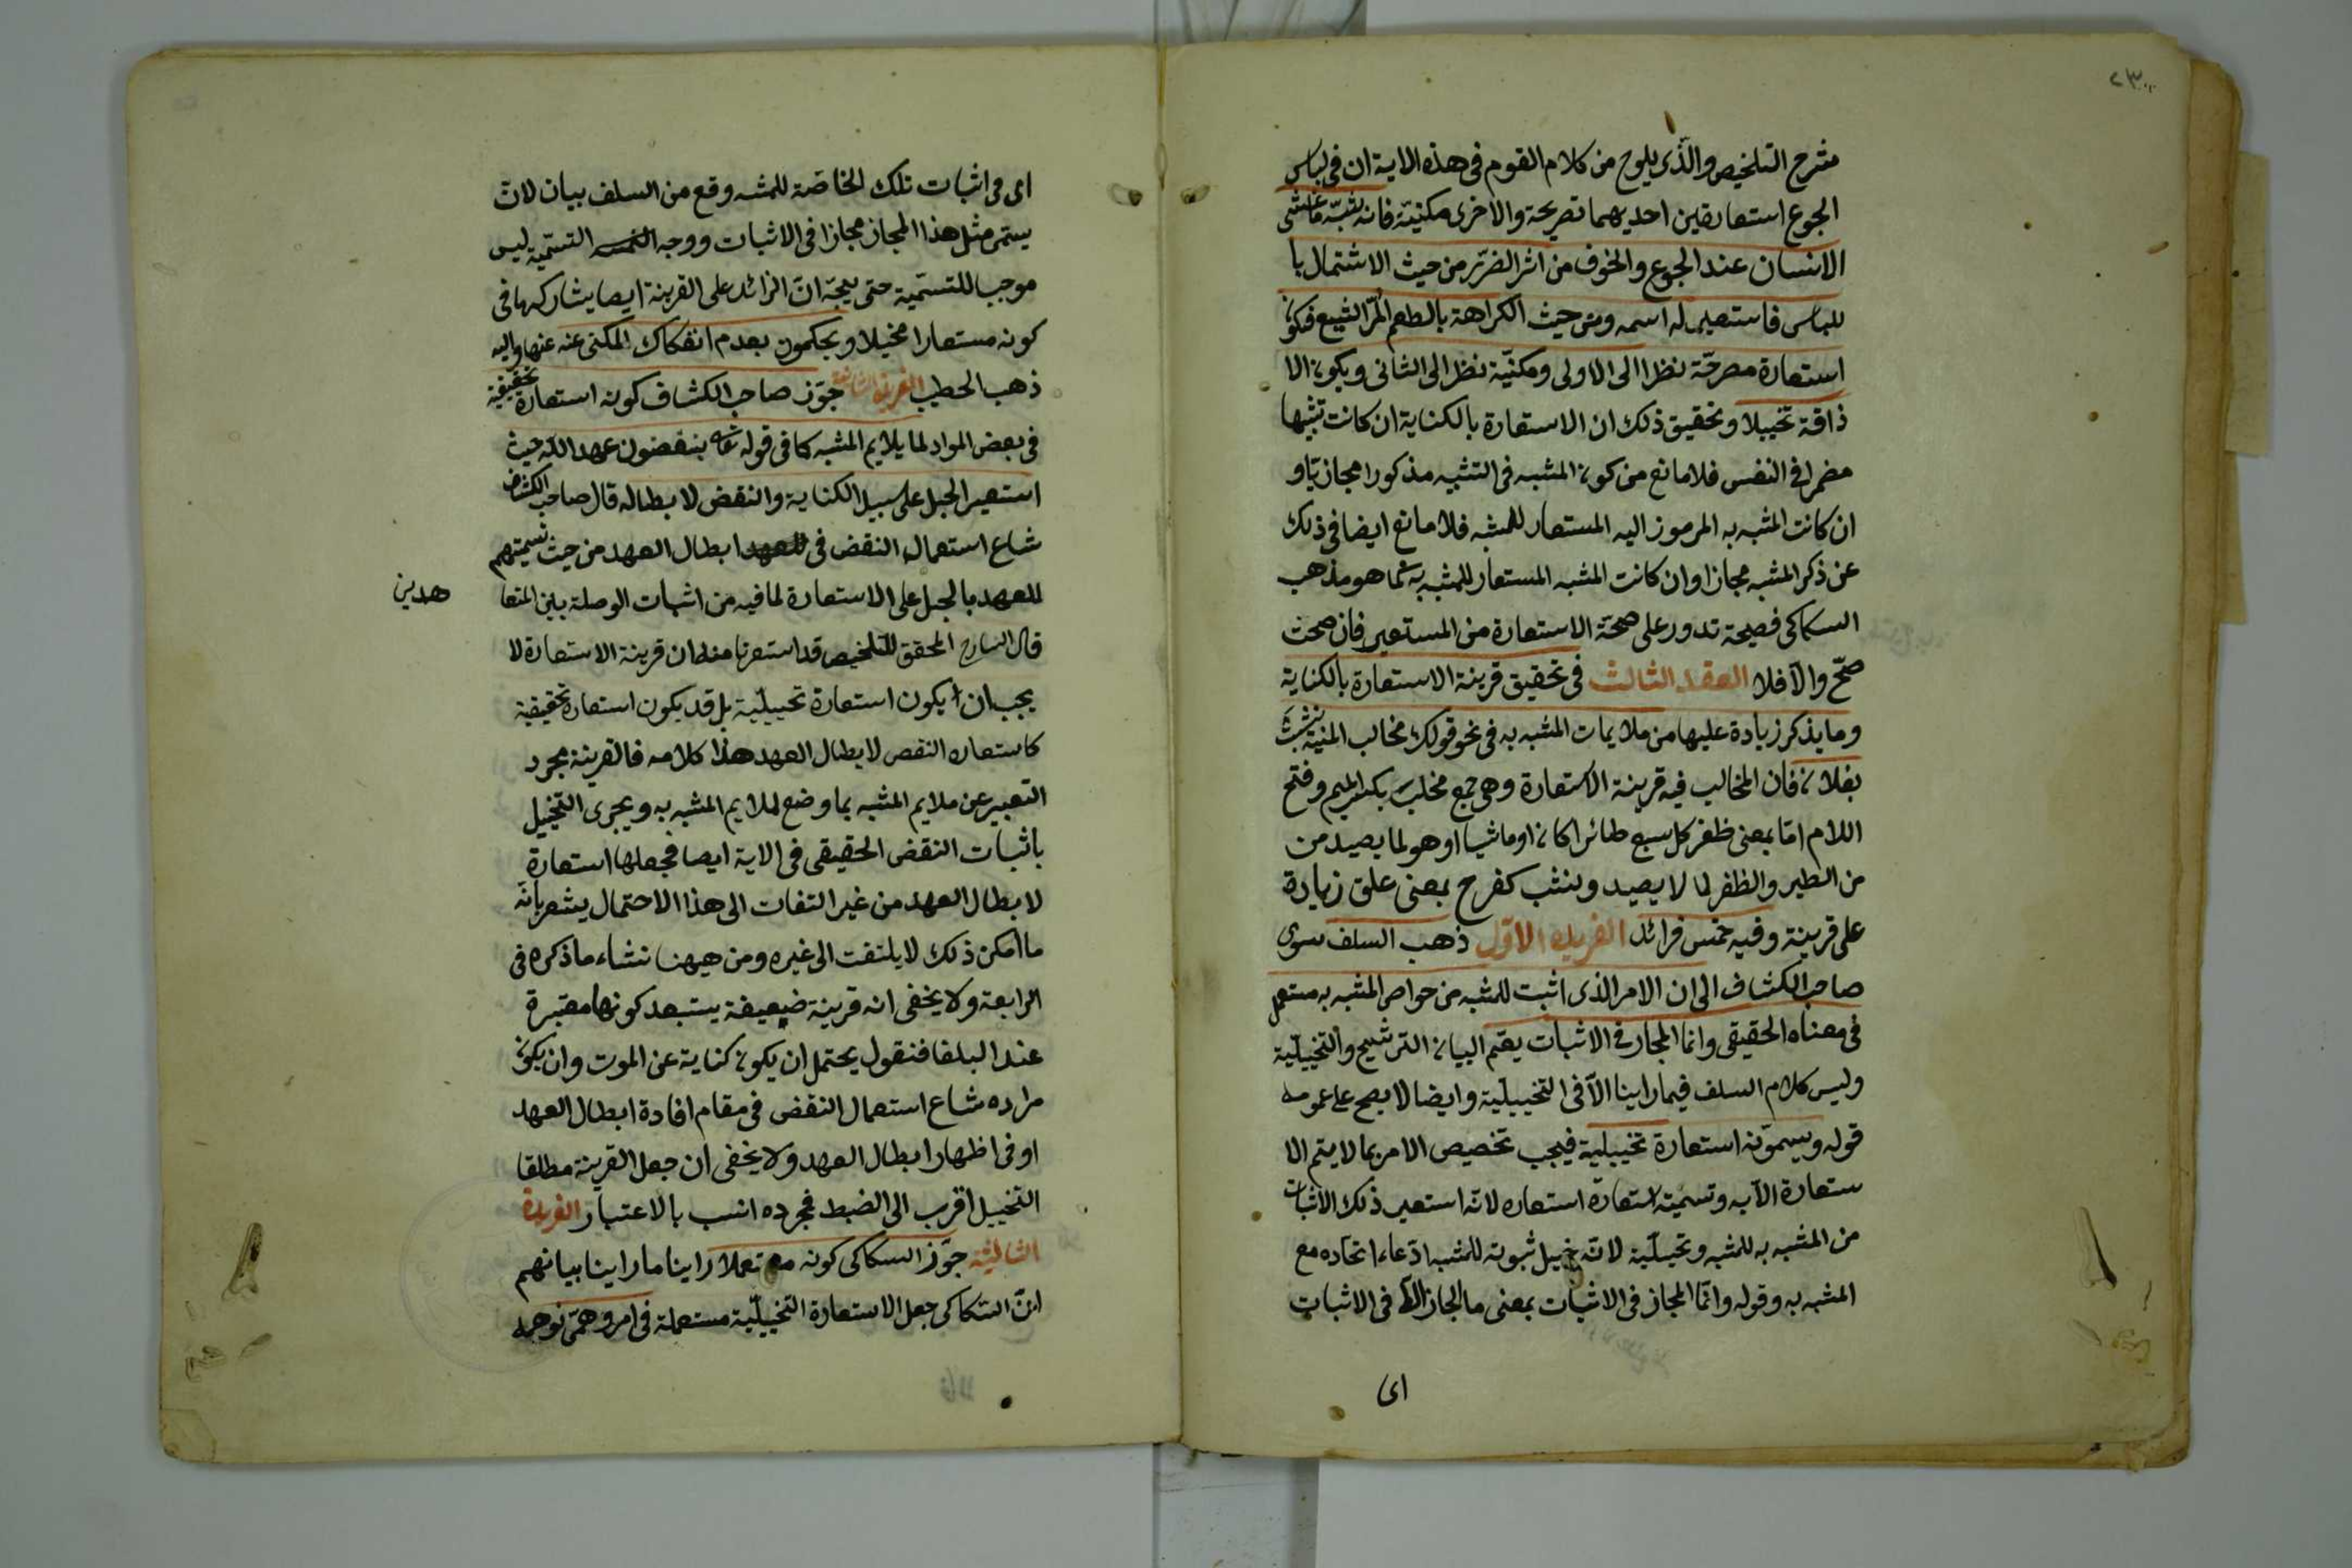 ٢٣
شرح التلخيص والذى يلوح من كلام القوم فى هذه الاية ان فى لباس
الجوع استعارتين احديهما تصريحة والاخرى مكنيّة فانه شبّه ما غشى
الانسان عند الجوع والخوف من اثر الضرّ من حيث الاشتمال با
للباس فاستعير له اسمه ومن حيث الكراهة بالطعم المرّ البشيع فيكون
استعارة مصرحّة نظرا الى الاولى ومكنّية نظر الى الثانى ويكون الا
ذاقة تخييلا وتحقيق ذلك ان الاستعارة بالكناية ان كانت تشبيها
مضمرا فى النفس فلا مانع من كون المشبه فى التشبيه مذكورا مجازيّا و
ان كانت المشبه به المرموز اليه المستعار للمشبه فلا مانع ايضا فى ذلك
عن ذكر المشبه مجازا وان كانت المشبه المستعار للمشبه به كما هو مذهب
السكاكى فصيحة تدور على صحّة الاستعارة من المستعير فان صحت
صحّ والّا فلا العقد الثالث فى تحقيق قرينة الاستعارة بالكناية
وما يذكر زيادة عليها من ملايمات المشبه به فى نحو قولك مخالب المنية نشبت
بفلان فان المخالب فيه قرينة الاستعارة وهى جمع مخلب بكسر الميم وفتح
اللام امّا بمعنى ظفر كل سبع طائرا كان او ماشيا او هو لما يصيد من
من الطير والظفر لما لا يصيد ونشب كفرح بمعنى علق زيادة
على قرينة وفيه خمس فرائد الفريدة الاوّل ذهب السلف سوى
صاحب الكشاف الى ان الامر الذى اثبت للمشبه من خواص المشبه به مستعمل
فى معناه الحقيقى وانما المجاز فى الاثبات يقتم البيان الترشيح والتخييليّة
وليس كلام السلف فيما راينا الّا فى التخييليّة وايضا لا يصح على عمومه
قوله ويسمّونه استعارة تخييلية فيجب تخصيص الامر بما لا يتم الا
ستعارة الّا به وتسميته استعارة استعاره لانّه استعير ذلك الاثبات
من المشبه به للمشبه وتخييليّة لانّه خيل ثبوته للمشبه ادّعاء اتحاده مع
المشبه به وقوله وانّما المجاز فى الاثبات بمعنى ما المجاز الّا فى الاثبات
اى
اى فى اثبات تلك الخاصّة للمشبه وقع من السلف بيان لانّ
يستمر مثل هذا المجاز مجازا فى الاثبات ووجه التسمية ليس
موجبا للتسمية حتى يتجّه انّ الزائد على القرينة ايضا يشاركها فى
كونه مستعارا مخيلا ويحكمون بعدم انفكاك المكنى عنه عنها واليه
ذهب الخطيب الفريدة الثانية جوّز صاحب الكشاف كونه استعارة تحقيقية
فى بعض المواد لما يلايم المشبه كما فى قوله تعالى ينقضون عهد الله حيث
استعير الحبل على سبيل الكناية والنقض لابطاله قال صاحب الكشاف
شاع استعمال النقض فى ابطال العهد من حيث تسميتهم
للعهد بالحبل على الاستعارة لما فيه من اثبات الوصلة بين المتعا
هدين
قال الشارح المحقق للتلخيص قد استعرنا منه ان قرينة الاستعارة لا
يجب ان يكون استعارة تخييليّة بل قد يكون استعارة تحقيقية
كاستعاره النقص لابطال العهد هذا كلامه فالقرينة مجرد
التعبير عن ملايم المشبه بما وضع لملايم المشبه به ويجرى التخييل
باثبات النقض الحقيقى فى الاية ايضا فجعلها استعارة
لابطال العهد من غير التفات الى هذا الاحتمال يشعر بانّه
ما امكن ذلك لا يلتفت الى غيره ومن هيهنا نشاء ما ذكره فى
الرابعة ولا يخفى انه قرينة ضعيفة يستبعد كونها معتبرة
عند البلغا فنقول يحتمل ان يكون كناية عن الموت وان يكون
مراده شاع استعمال النقض فى مقام افادة ابطال العهد
او فى اظهار ابطال العهد ولا يخفى ان جعل القرينة مطلقا
التخييل اقرب الى الضبط فجرده انسب بالاعتبار الفريدة
الثالثة جوّز السكاكى كونه مستعملا راينا ما راينا بيانهم
انّ السكاكى جعل الاستعارة التخييليّة مستعملة فى امر وهمّى توهمه